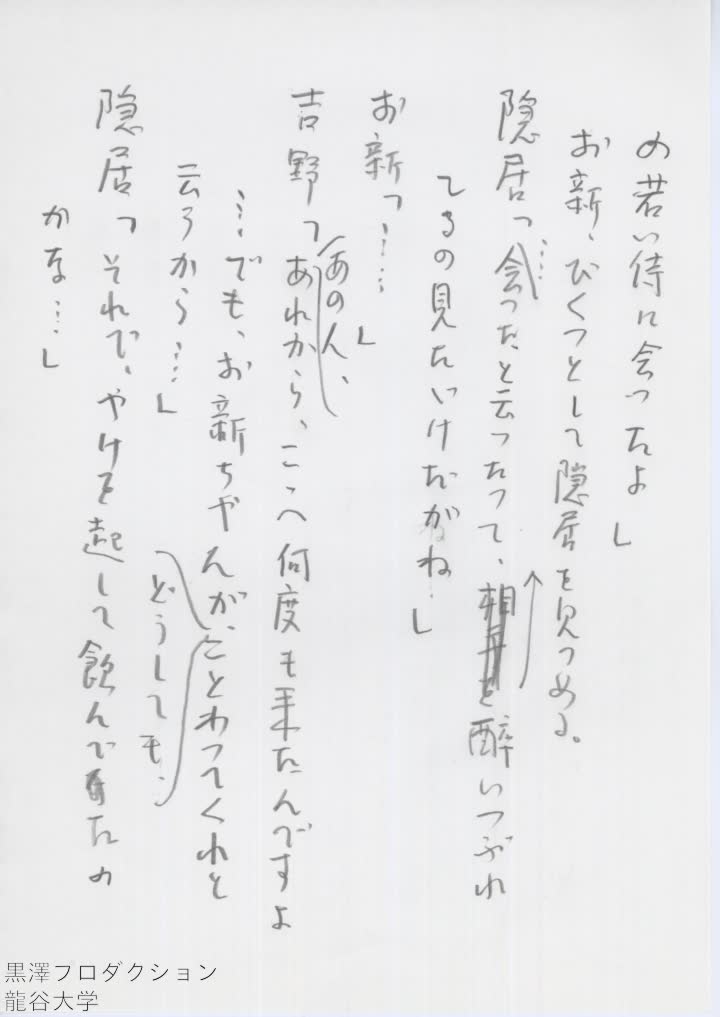 の若い侍に会ったよ」
お新、びくっとして隠居を見つめる。
隠居「……会ったと云ったって、酔いつぶれ
てるの見たいけだがね」
お新「……」
吉野「あの人、あれから、こゝへ何度も来たんですよ
…でも、お新ちゃんが、どうしても、ことわってくれと
云うから……」
隠居「それで、やけを起して飲んでたの
かな…」
黒澤プロダクション
龍谷大学